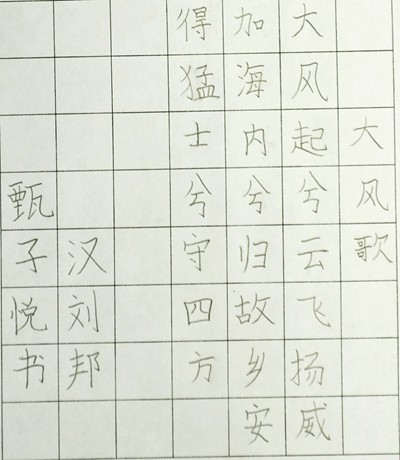 大风歌
大风起兮云飞扬威
加海内兮归故乡安
得猛士兮守四方
汉刘邦
甄子悦书